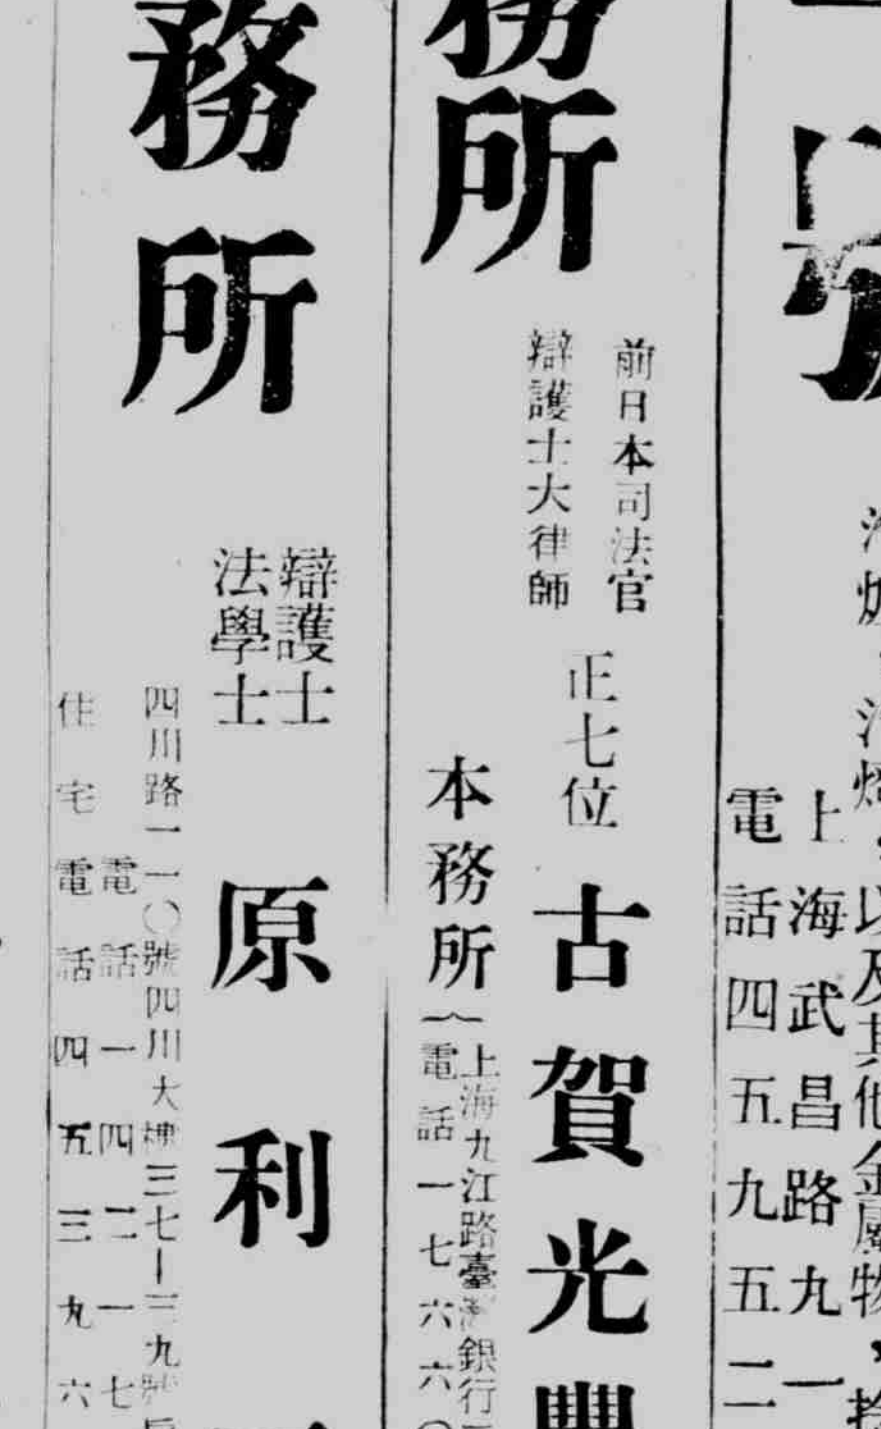 以及其他金屬物
上海武昌路九一
電話四五九五二
務所
前日本司法官
辯護士大律師
正七位
古賀光豐
本務所
上海九江路臺灣銀行
電話一七六六〇
務所
辯護士
法學士
原利
四川路一一〇號四川大樓三七—三九號
電話一四二一七
住宅電話四五三九六